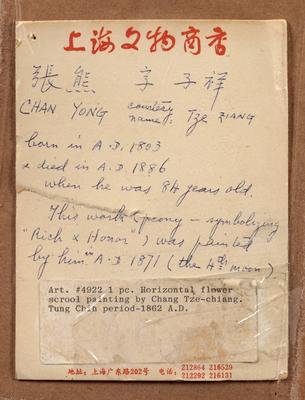 上海文物商店
張熊 字 子祥
CHAN YONG courtesy name: Tze ZIANG
born in A.D. 1803
& died in A.D. 1886
when he was 84 years old.
This work (peony – symbolizing
"Rich & Honor") was painted
by him in A.D 1871 (the 4th moon)
Art. #4922 1 pc. Horizontal flower
scrool painting by Chang Tze-chiang.
Tung Chin period-1862 A.D.
地址:上海广东路202号 电话: 212864 216529
212292 216131